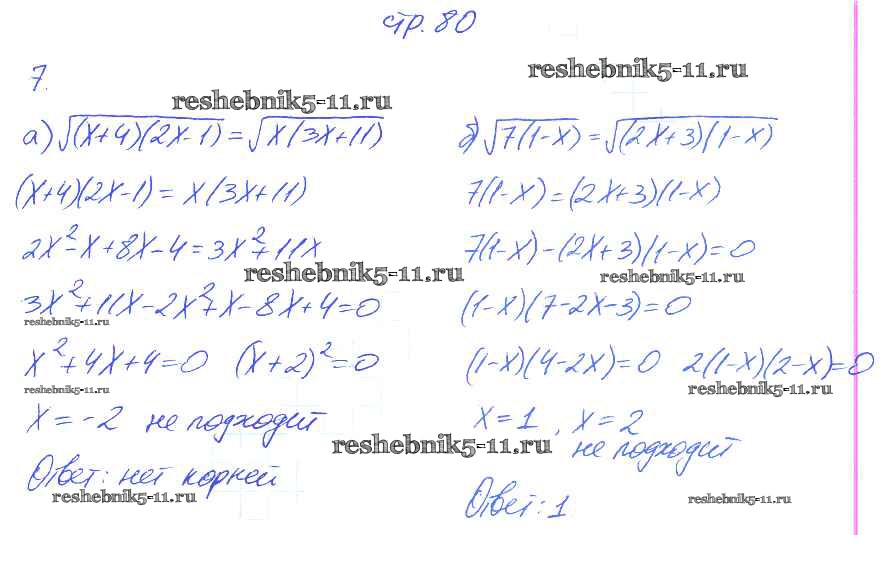 стр. 80
7.
reshebnik5-11.ru
reshebnik5-11.ru
а) √(x+4)(2x-1) = √x(3x+11)
(x+4)(2x-1) = x(3x+11)
2x²-x+8x-4=3x²+11x
reshebnik5-11.ru
3x²+11x-2x²+x-8x+4=0
reshebnik5-11.ru
x²+4x+4=0 (x+2)²=0
reshebnik5-11.ru
x=-2 не подходит
reshebnik5-11.ru
Ответ: нет корней
reshebnik5-11.ru
б) √7(1-x) = √(2x+3)(1-x)
7(1-x)=(2x+3)(1-x)
7(1-x)-(2x+3)(1-x)=0
reshebnik5-11.ru
(1-x)(7-2x-3)=0
(1-x)(4-2x)=0 2(1-x)(2-x)=0
reshebnik5-11.ru
x=1, x=2
не подходит
Ответ: 1
reshebnik5-11.ru